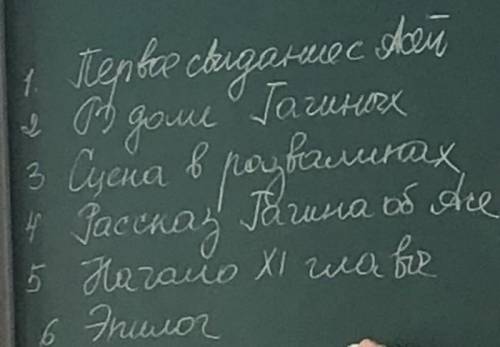 1. Первое свидание с Асей
2 В доме Гагиных
3 Сцена в развалинах
4 Рассказ Гагина об Асе
5 Начало XI главы
6 Эпилог